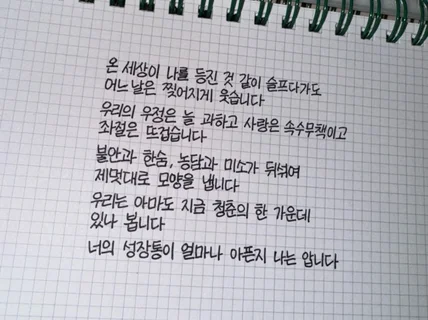 온 세상이 나를 등진 것 같이 슬프다가도
어느 날은 찢어지게 웃습니다
우리의 우정은 늘 과하고 사랑은 속수무책이고
좌절은 뜨겁습니다
불안과 한숨, 농담과 미소가 뒤섞여
제멋대로 모양을 냅니다
우리는 아마도 지금 청춘의 한 가운데
있나 봅니다
너의 성장통이 얼마나 아픈지 나는 압니다